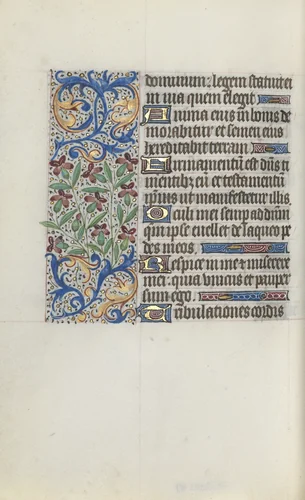 dominum: legem statuet ei
in uia quem elegit
Anima eius in bonis de
morabitur et semen eius
hereditabit terram
Firmamentū est dn̄s ti
mentibus eū et testamentū
ipsius ut manifestetur illis
Oculi mei semp ad dn̄m
qm̄ ipse euellet de laqueo pe
des meos
Respice in me et miserere
mei: quia vnicus et pauper
sum ego
Tribulationes cordis